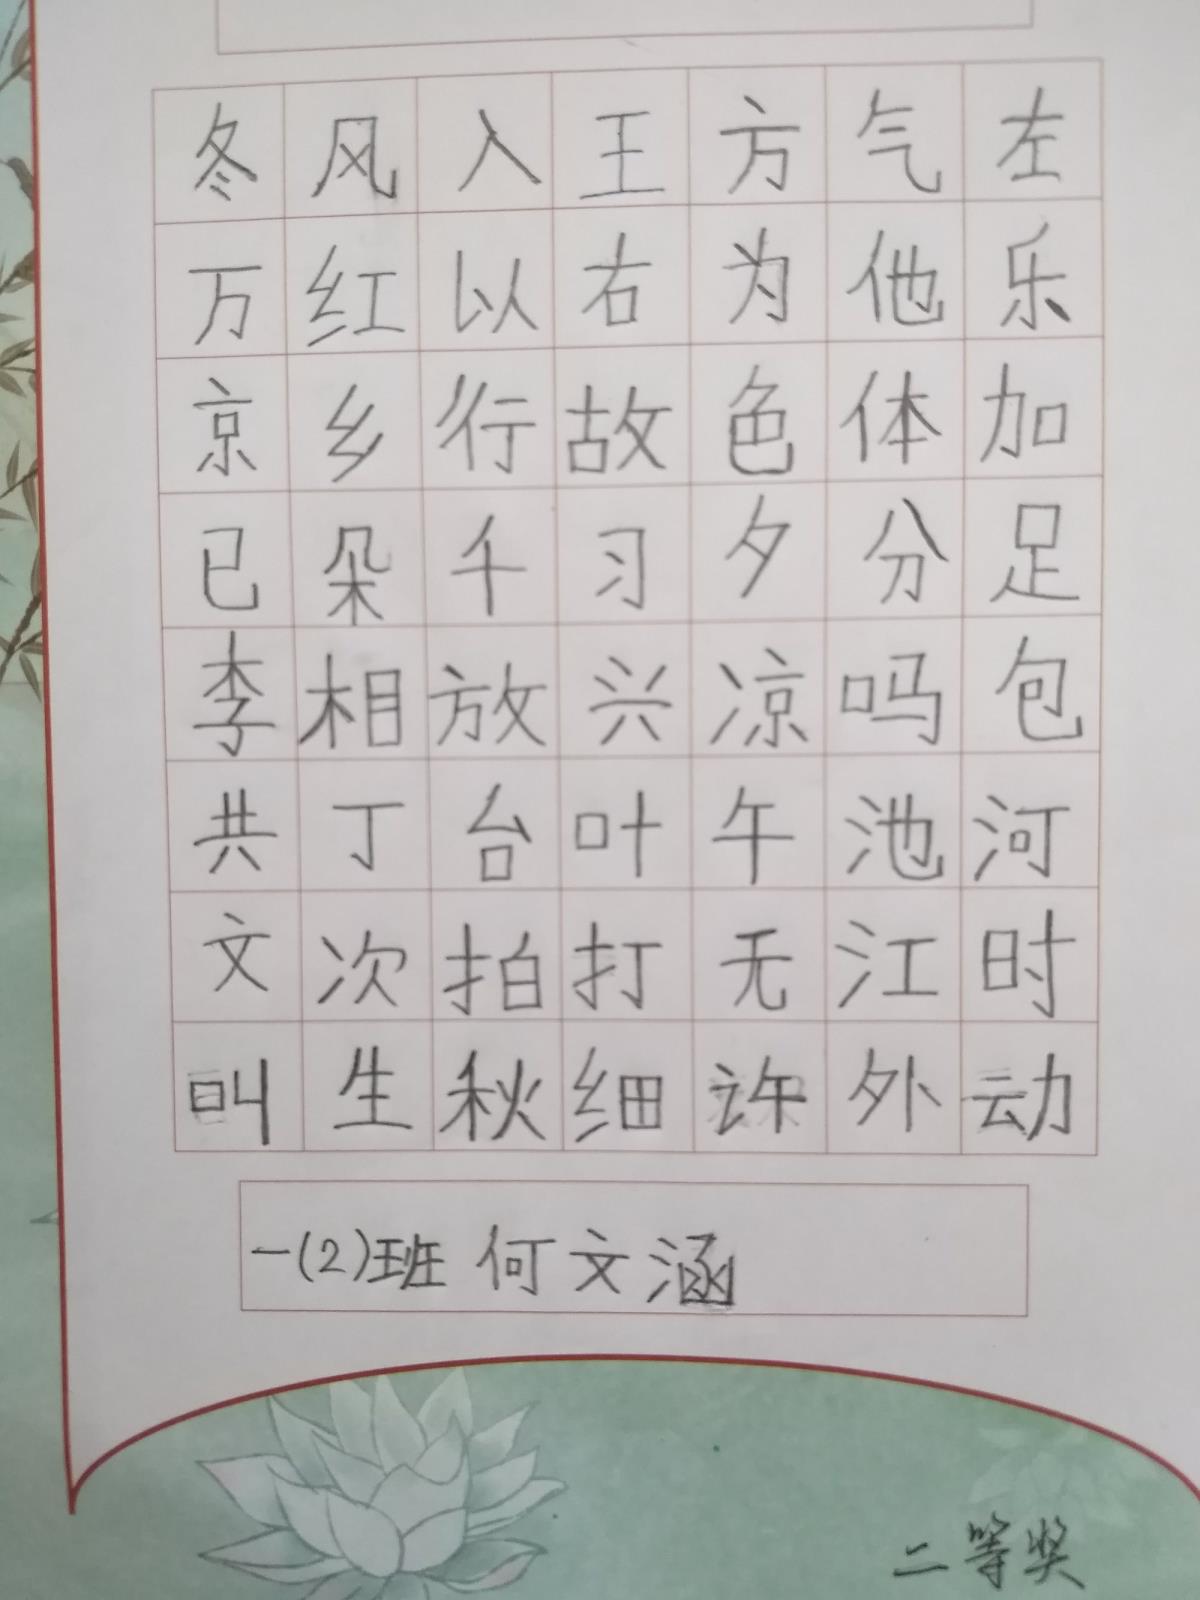 冬风入王方气左
万红以右为他乐
京乡行故色体加
已朵千习夕分足
李相放兴凉吗包
共丁台叶午池河
文次拍打无江时
叫生秋细许外动
一(2)班 何文涵
二等奖